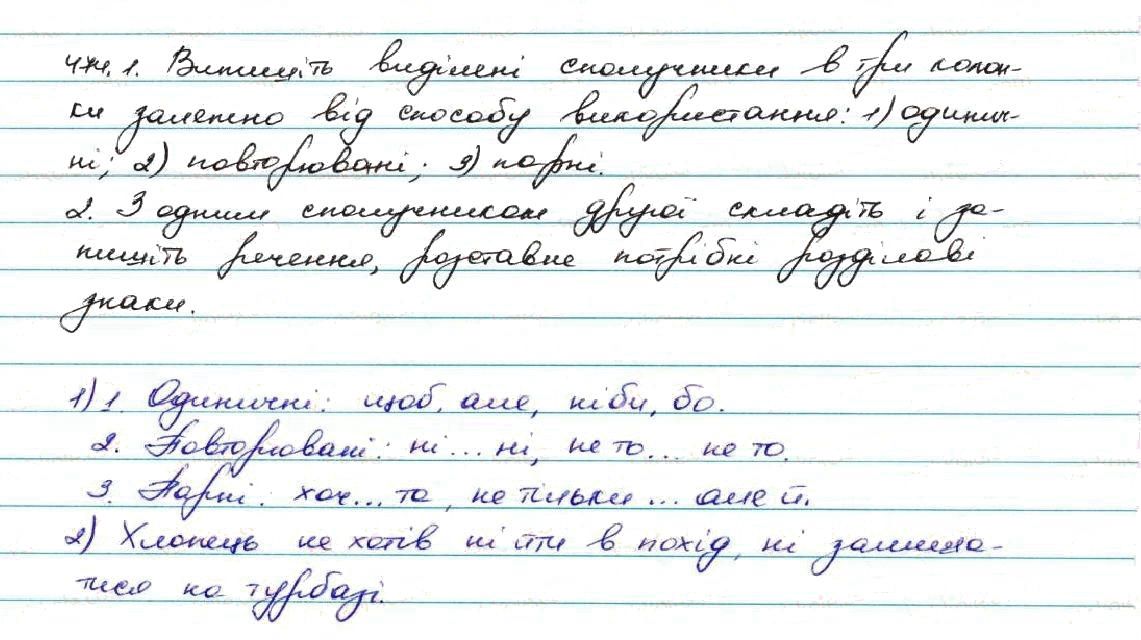 1. Випишіть виділені сполучники в три колон-
ки залежно від способу використання: 1) одинич-
ні; 2) повторювані; 3) парні.
2. З одним сполучником другої складіть і за-
пишіть речення, розставте потрібні розділові
знаки.
1) 1. Одиничні: щоб, але, ніби, бо.
2. Повторювані: ні... ні, не то... не то.
3. Парні: хоч... та, не тільки... але й.
2) Хлопець не хотів ні йти в похід, ні залиша-
тися на турбазі.